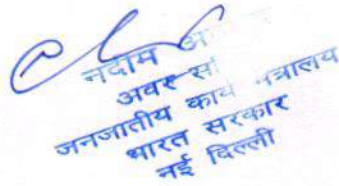 नदीम अ
अवर स
जनजातीय कार्य मंत्रालय
भारत सरकार
नई दिल्ली